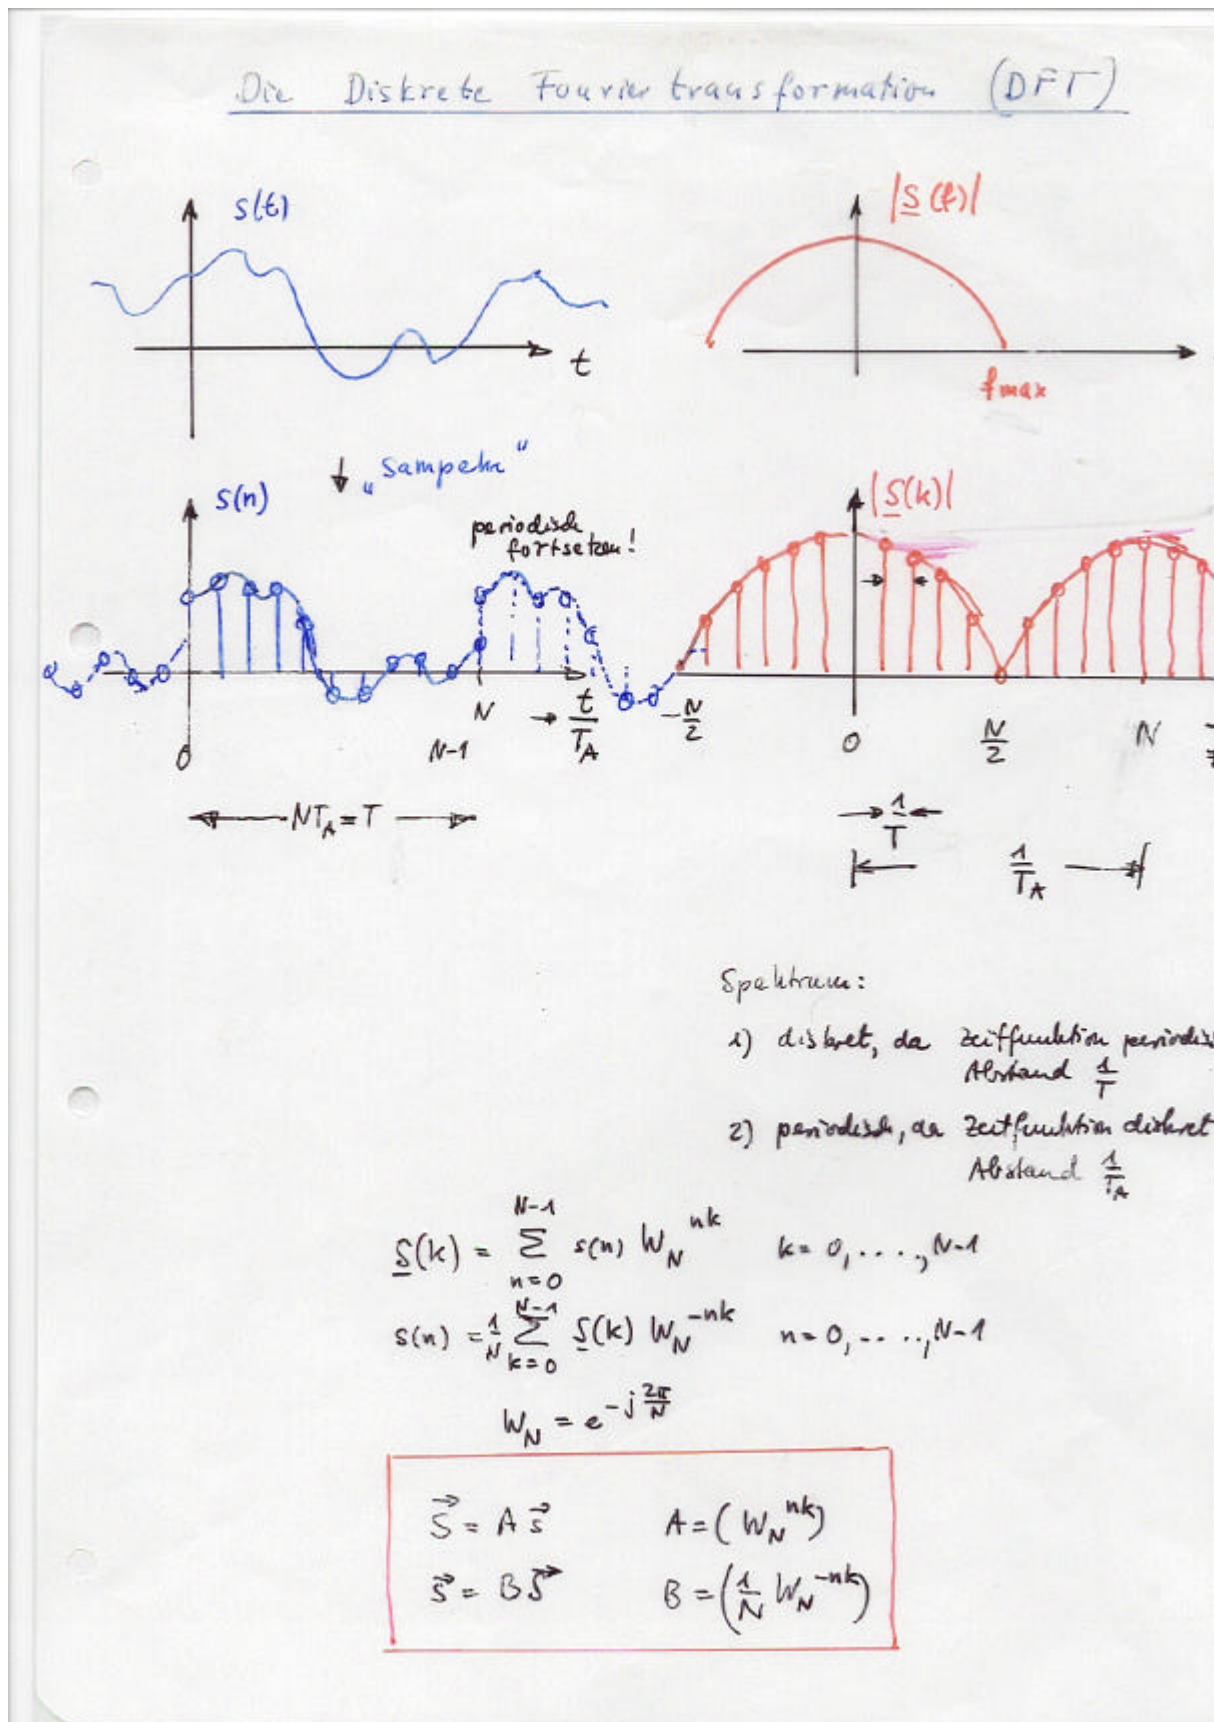 Die Diskrete Fouriertransformation (DFT)
s(t)
t
|S(f)|
fmax
↓ „sampeln“
s(n)
periodisch
fortsetzen!
0
N-1
N
→ t/T_A
NT_A = T
|S(k)|
-N/2
0
N/2
N
1/T
1/T_A
Spektrum:
1) diskret, da Zeitfunktion periodis
Abstand 1/T
2) periodisch, da Zeitfunktion diskret
Abstand 1/T_A
S(k) = Σ_{n=0}^{N-1} s(n) W_N^{nk} k = 0, ...., N-1
s(n) = 1/N Σ_{k=0}^{N-1} S(k) W_N^{-nk} n = 0, ...., N-1
W_N = e^{-j 2π/N}
S⃗ = A s⃗ A = (W_N^{nk})
s⃗ = B S⃗ B = (1/N W_N^{-nk})